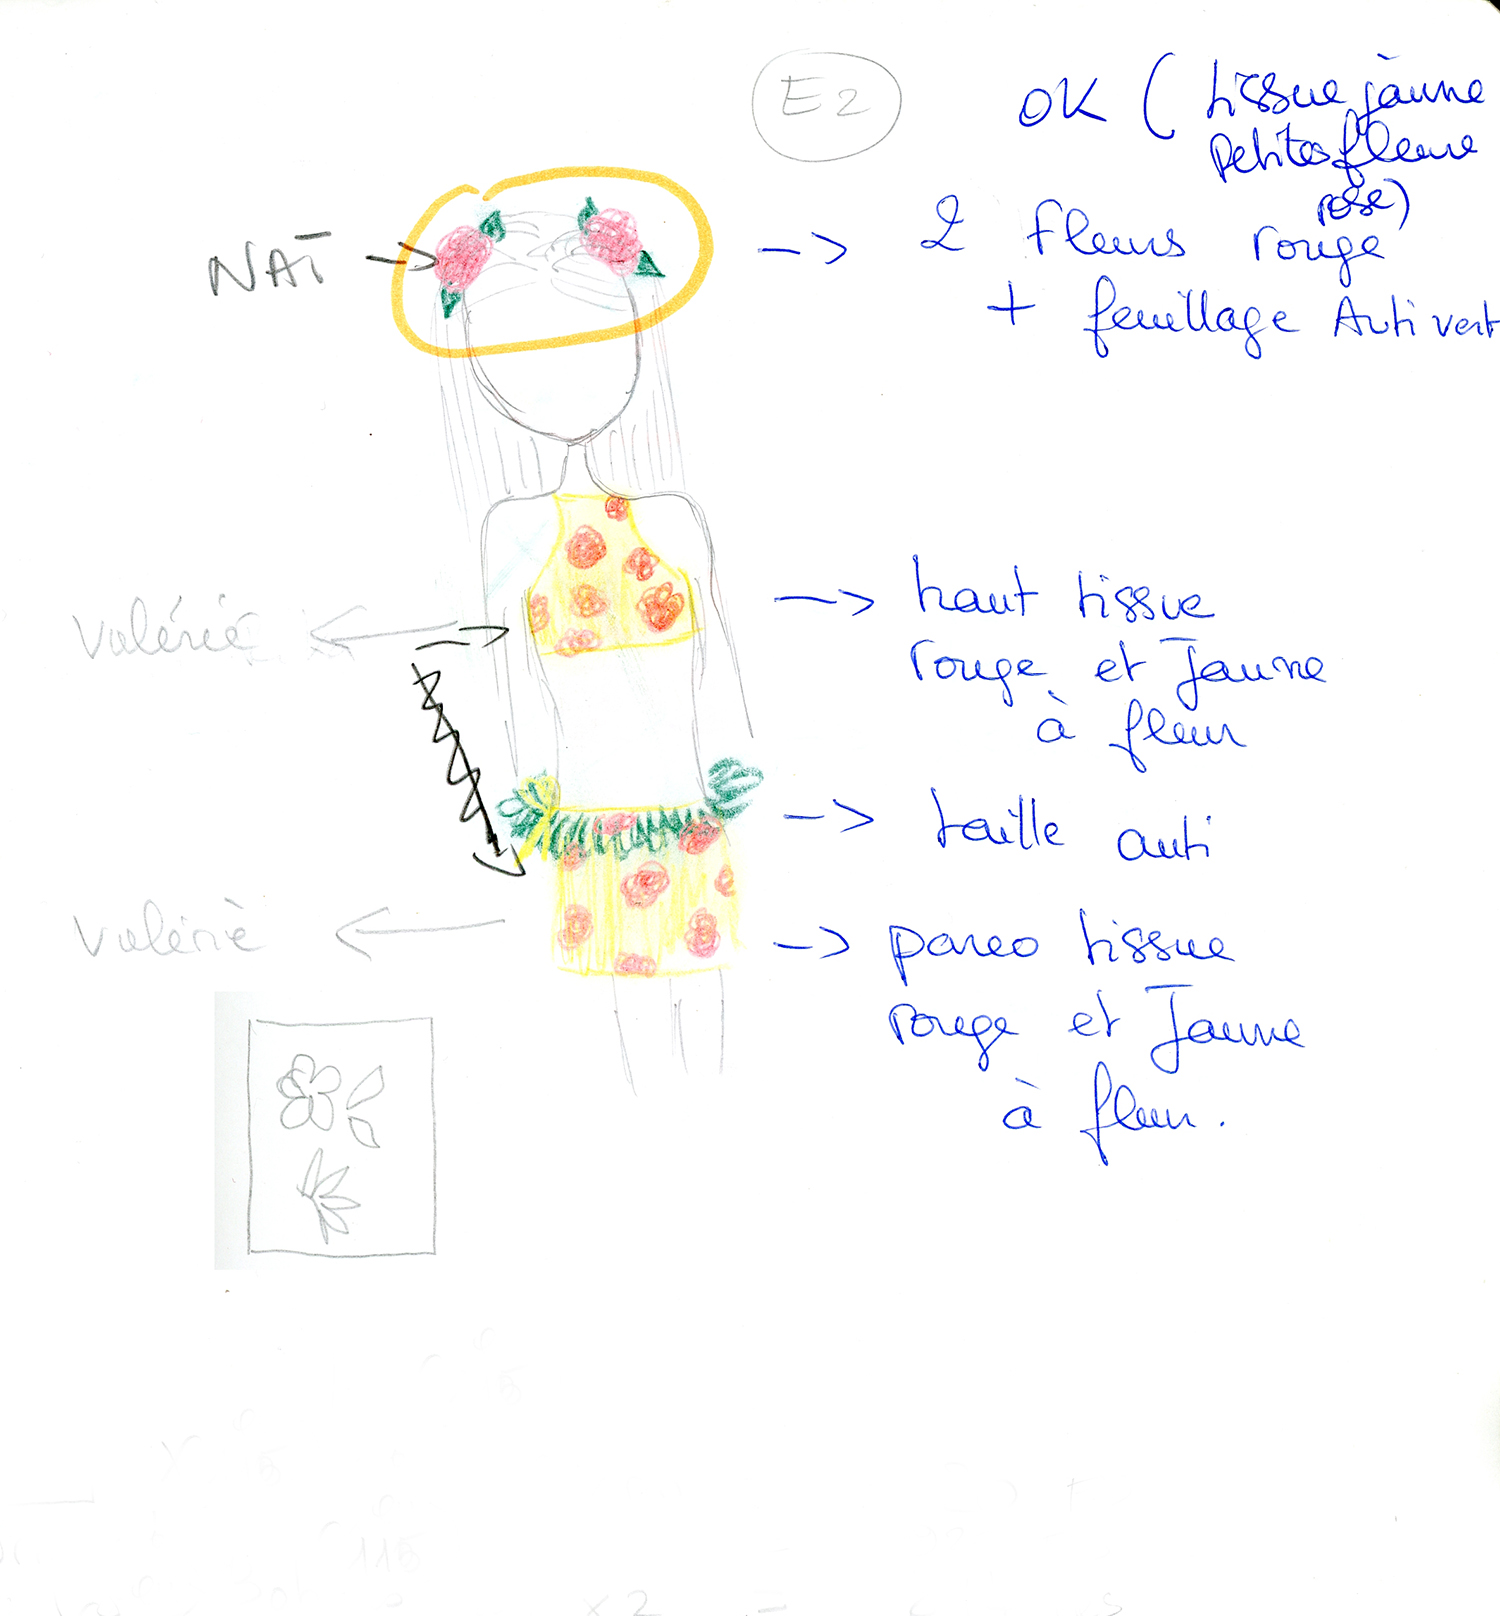 E2
OK ( tissue jaune
petites fleure
rose)
NAT
2 fleurs rouge
+ feuillage Auti vert
haut tissue
rouge et Jaune
à fleur
Valérie
taille auti
Valérie
pareo tissue
rouge et Jaune
à fleur.